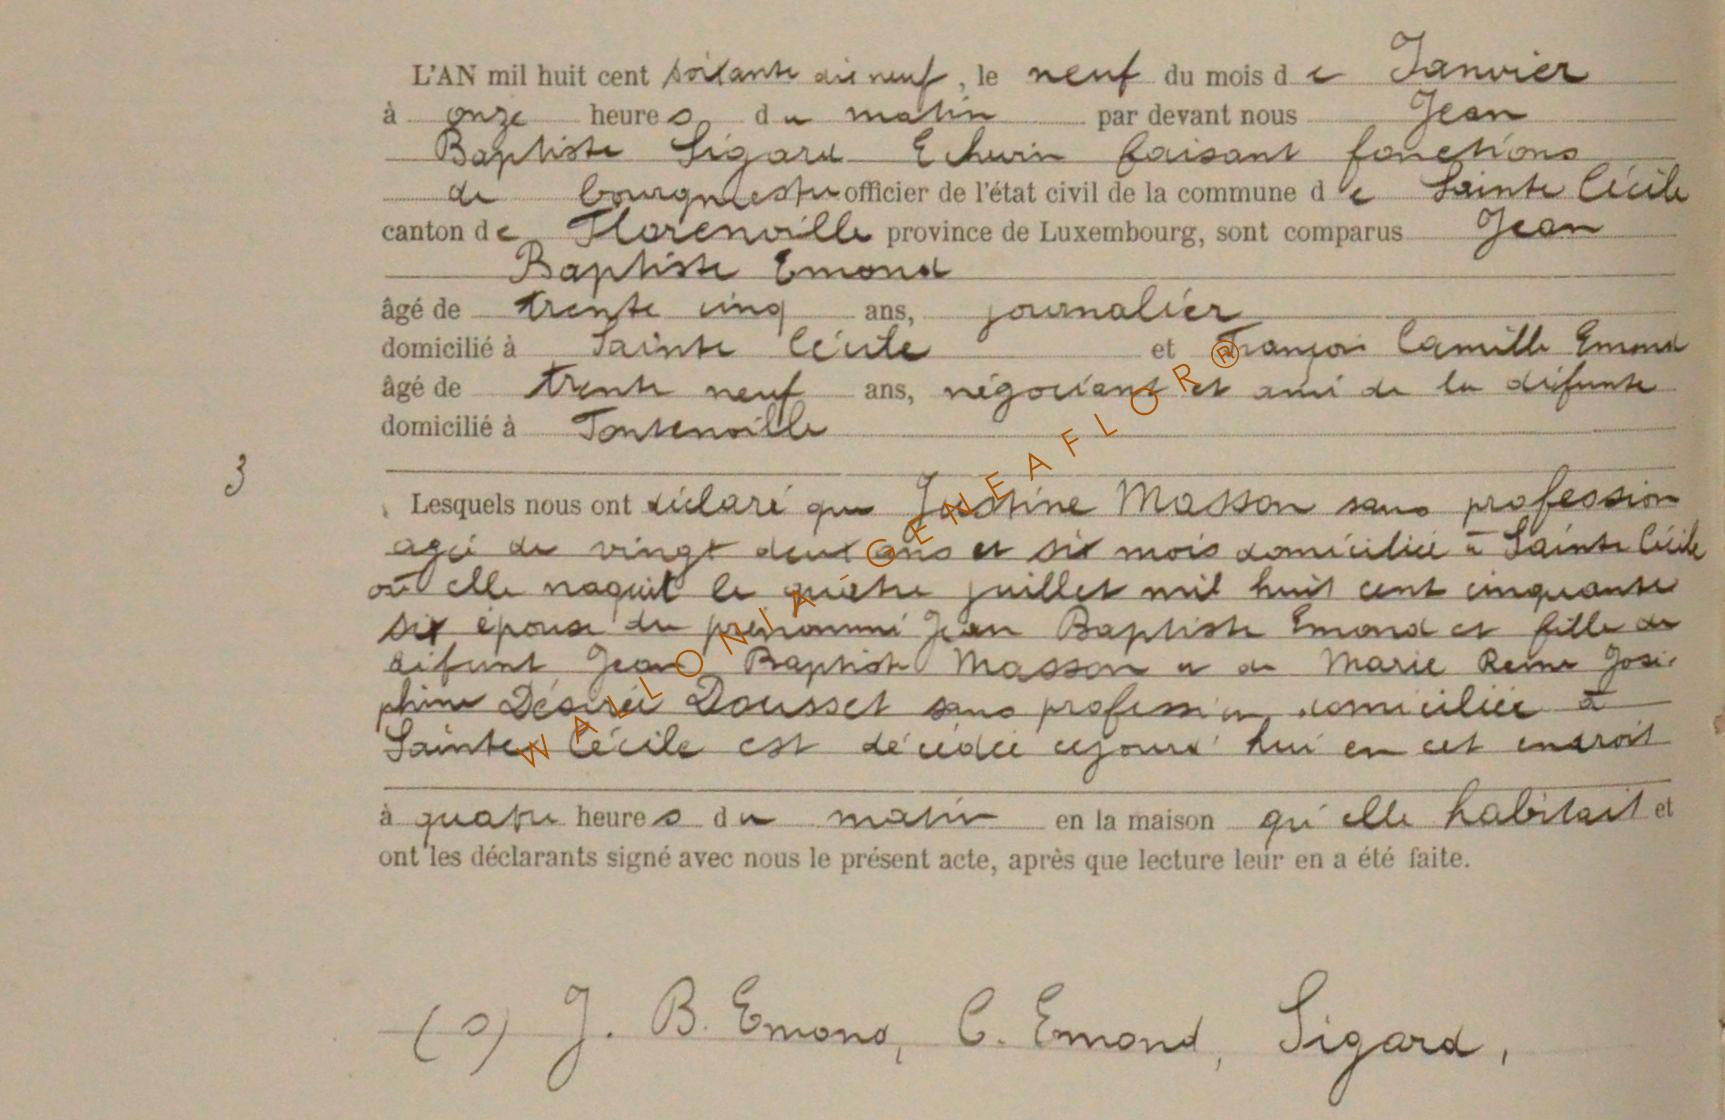 L'AN mil huit cent soixante dix neuf, le neuf du mois de Janvier
à onze heures du matin par devant nous Jean
Baptiste Sigard Echevin faisant fonctions
de bourgmestre officier de l'état civil de la commune de Sainte Cécile
canton de Florenville province de Luxembourg, sont comparus Jean
Baptiste Emond
âgé de trente cinq ans, journalier
domicilié à Sainte Cécile et François Camille Emond
âgé de trente neuf ans, négociant et ami de la défunte
domicilié à Fontenoille
3
Lesquels nous ont déclaré que Justine Masson sans profession
agée de vingt deux ans et six mois domiciliée à Sainte Cécile
où elle naquit le quatre juillet mil huit cent cinquante
six épouse du prénommé Jean Baptiste Emond et fille de
défunt Jean Baptiste Masson et de Marie Reine José-
phine Désirée Dousset sans profession domiciliée à
Sainte Cécile est décédée cejourd'hui en cet endroit
à quatre heures du matin en la maison qu'elle habitait et
ont les déclarants signé avec nous le présent acte, après que lecture leur en a été faite.
(s) J. B. Emond, C. Emond, Sigard,
WALLONIA GENEAFLOR®